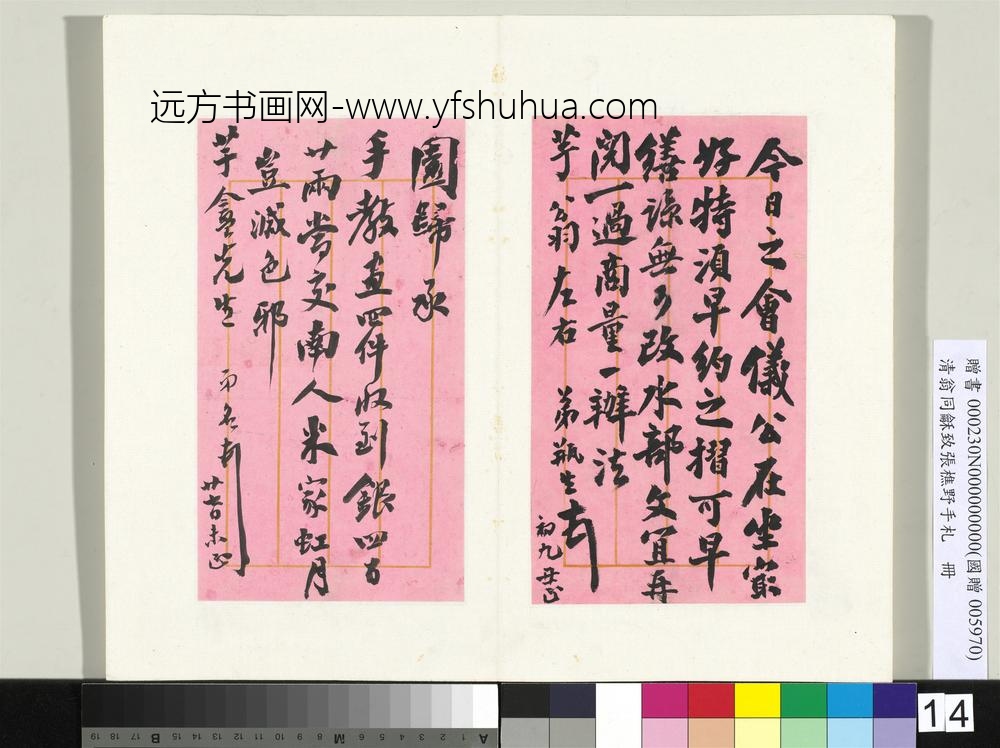 远方书画网-www.yfshuhua.com
今日之會儀公在坐寂
好特須早約之摺可早
繕詠無可改水部文宜再
閱一過商量一辦法
芋翁左右 弟瓶生 初九
園歸承
手教畫四件收到銀四百
廿兩当交南人米家虹月
豈減色耶
芋盦先生 两名 廿六日未正
贈書 000230N000000000(國贈 005970)
清翁同龢致張樵野手札 冊
14
19 18 17 16 15 B 14 13 12 11 10 M 8 7 6 5 4 3 2 1 A